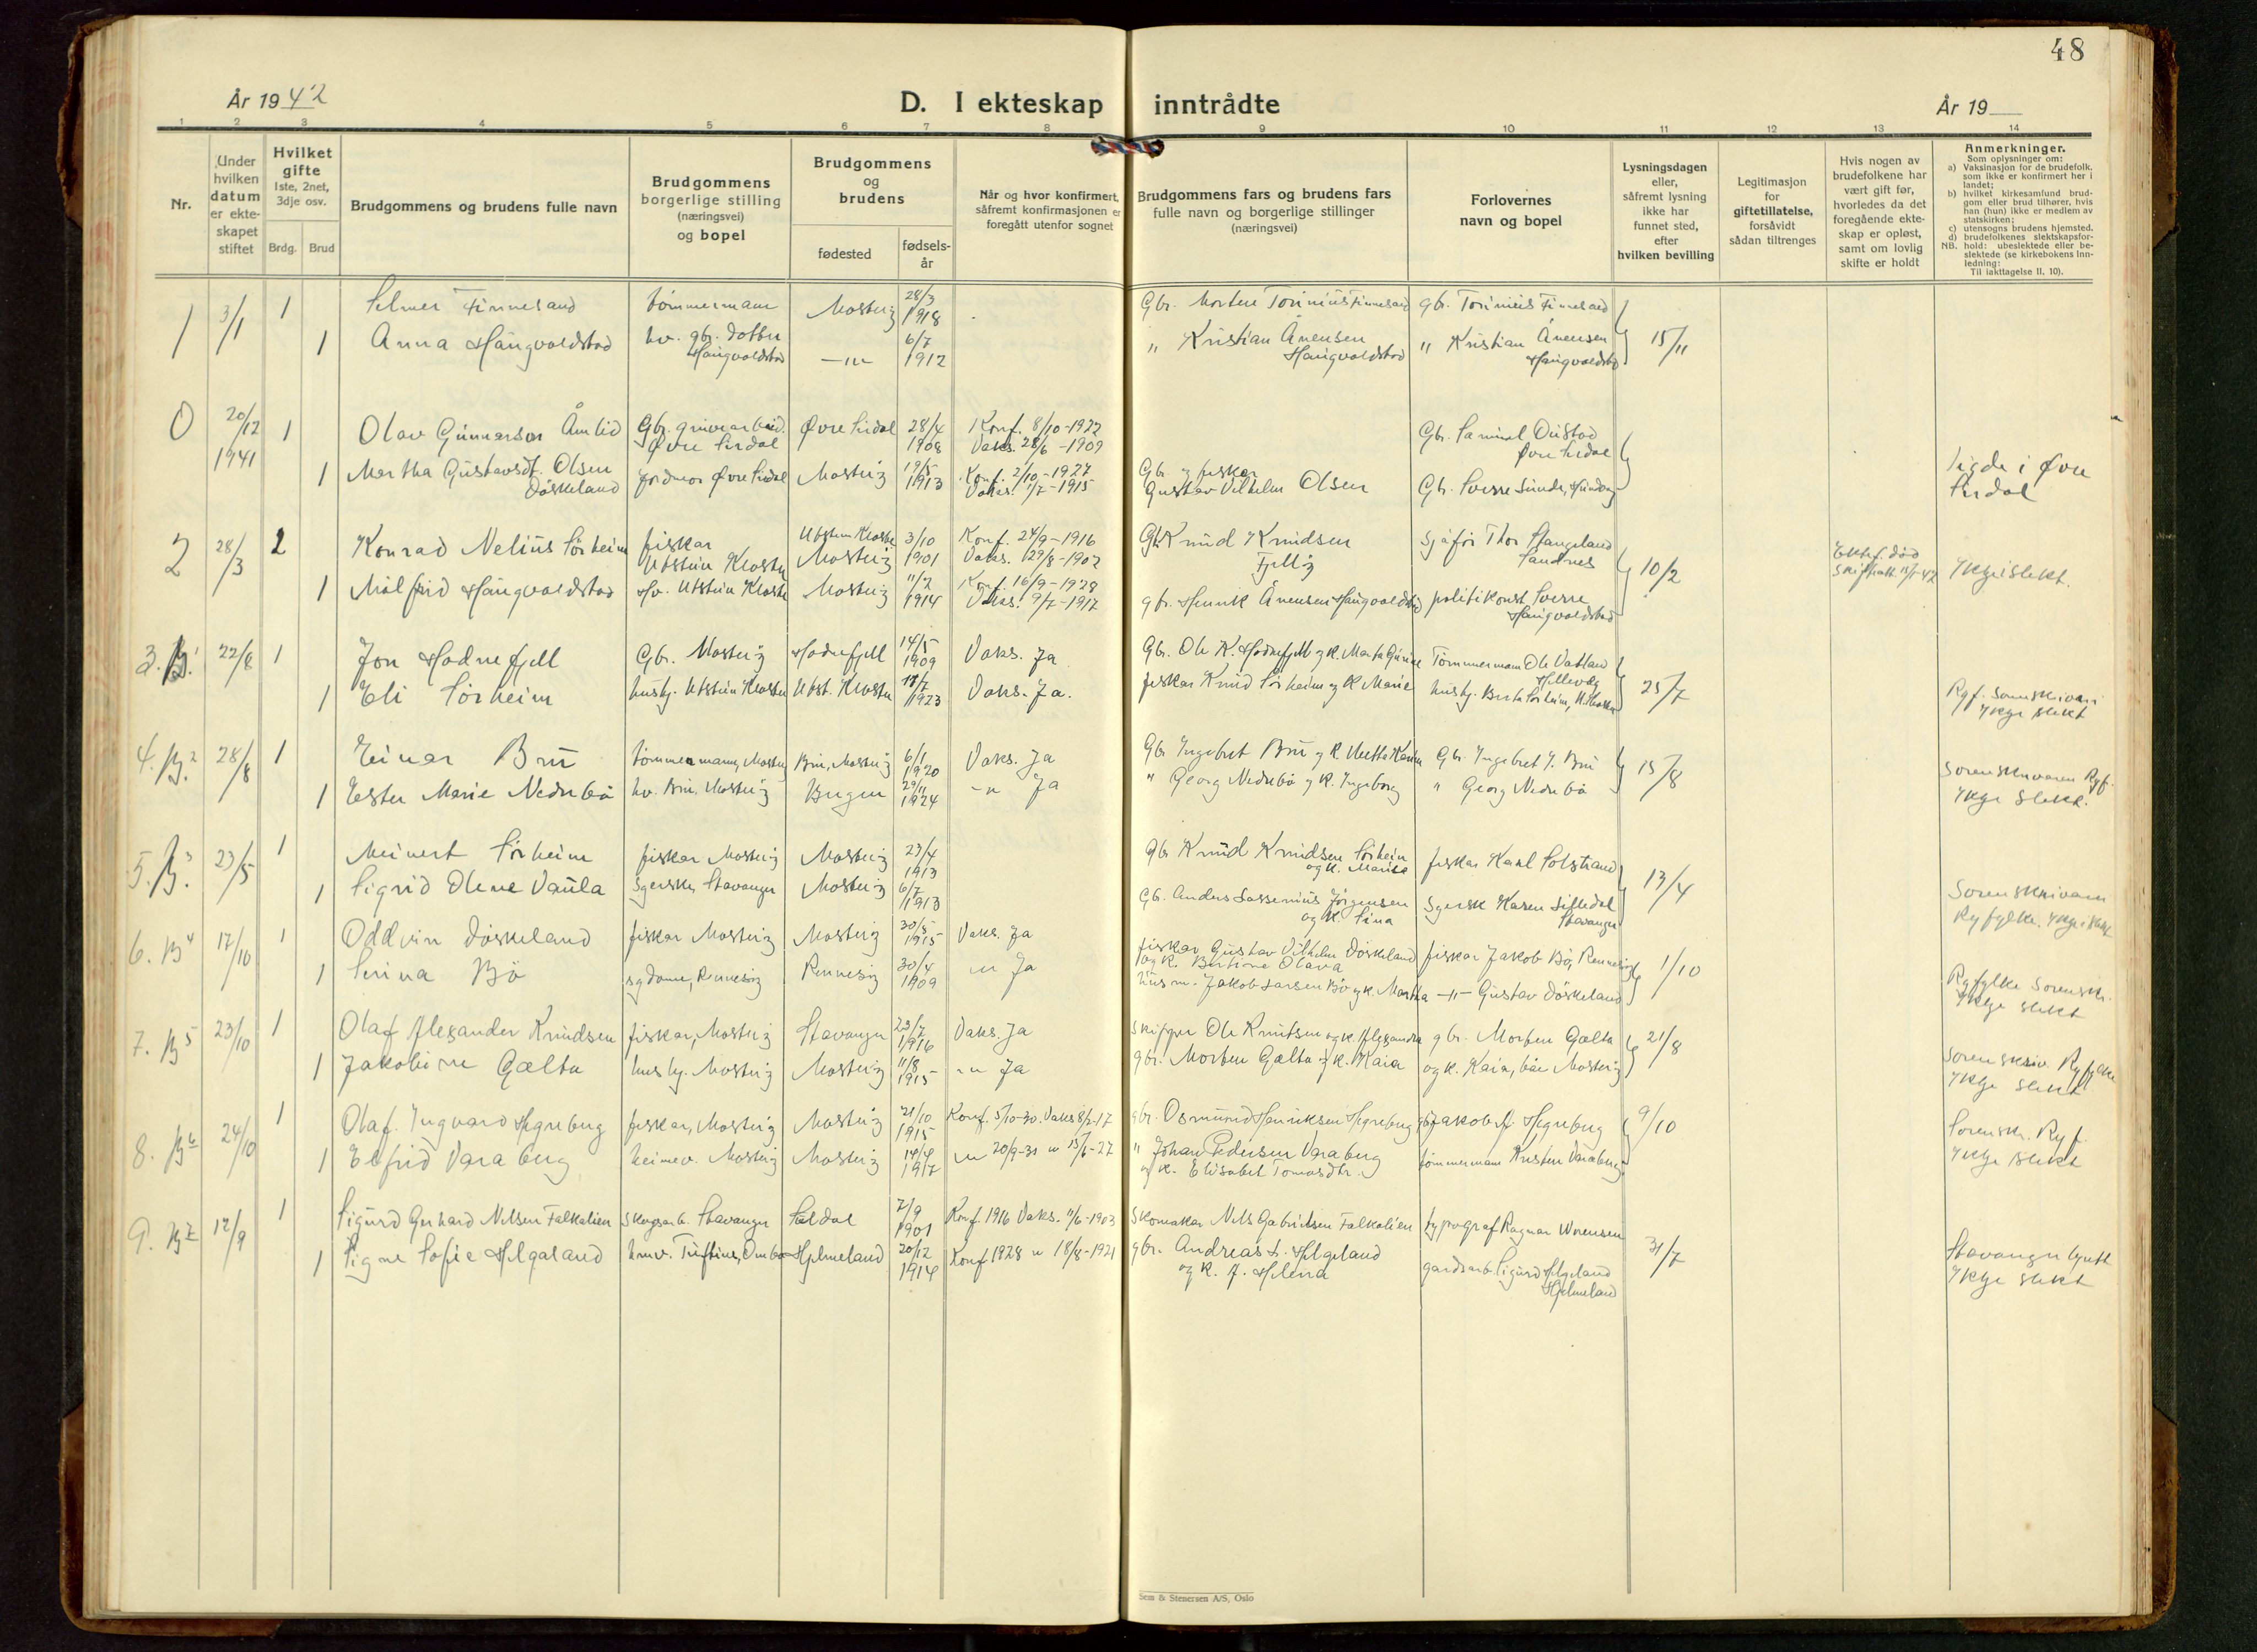 48
År 1942
D. I ekteskap inntrådte
År 19
1 2 3 4 5 6 7 8 9 10 11 12 13 14
Nr.
Under hvilken datum er ekteskapet stiftet
Hvilket gifte
1ste, 2net, 3dje osv.
Brdg. Brud
Brudgommens og brudens fulle navn
Brudgommens borgerlige stilling (næringsvei) og bopel
Brudgommens og brudens
fødested
fødselsår
Når og hvor konfirmert, såfremt konfirmasjonen er foregått utenfor sognet
Brudgommens fars og brudens fars fulle navn og borgerlige stillinger (næringsvei)
Forlovernes navn og bopel
Lysningsdagen eller, såfremt lysning ikke har funnet sted, efter hvilken bevilling
Legitimasjon for giftetillatelse, forsåvidt sådan tiltrenges
Hvis nogen av brudefolkene har vært gift før, hvorledes da det foregående ekteskap er opløst, samt om lovlig skifte er holdt
Anmerkninger.
Som oplysninger om:
a) Vaksinasjon for de brudefolk, som ikke er konfirmert her i landet;
b) hvilket kirkesamfund brudgom eller brud tilhører, hvis han (hun) ikke er medlem av statskirken;
c) utensogns brudens hjemsted.
d) brudefolkenes slektskapsforhold: ubeslektede eller beslektede (se kirkebokens innledning:
NB.
Til iakttagelse II, 10).
1 3/1 1 Selmer Finnesand tømmermann Mosterøy 28/3 1918 Gbr. Morten Torinius Finnesand gb. Torinius Finnesand
1 Anna Haugvaldstad hv. gbr. dotter Haugvaldstad —"— 6/7 1912 " Kristian Ånensen Haugvaldstad " Kristian Ånensen Haugvaldstad 15/11
0 20/12 1941 1 Olav Gunnarson Åmlid Gbr. gruvearbeid. Øvre Sirdal Øvre Sirdal 28/4 1908 Konf. 8/10-1922 Vaks. 28/6-1909 Gb. Samuel Oustad Øvre Sirdal
1 Martha Gustavsdt. Olsen Døskeland jordmor Øvre Sirdal Mosterøy 19/5 1913 Konf. 2/10-1927 Vaks. 1/7-1915 Gbr og fiskar Gustav Vilhelm Olsen Gb. Sverre Sunde,
Vigde i Øvre Sirdal
2 28/3 2 Konrad Nelius Sørheim fiskar Utstein Kloster Utstein Kloster Mosterøy 3/10 1901 Konf. 24/9-1916 Vaks. 29/8-1902 Gb. Knud Knudsen Fjelløy Sjåfør Thor Stangeland Sandnes 10/2 Ektef. død Ikkje i slekt.
1 Målfrid Haugvaldstad Hv. Utstein Kloster Mosterøy 11/2 1914 Konf. 16/9-1928 Vaks. 9/7-1917 gb. Henrik Ånensen Haugvaldstad politikonst Sverre Haugvaldstad
3. B.1 22/8 1 Jon Hodnefjell Gbr. Mosterøy Hodnefjell 14/5 1909 Vaks. Ja Gbr. Ole K. Hodnefjell og K. Marta Gurine Tømmermann Ole Vatland Hillevåg 25/7
1 Eli Sørheim hushj. Utstein Kloster Utst. Kloster 18/7 1923 Vaks. Ja. fiskar Knud Sørheim og K Marie hushj. Berta Sørheim, U.Kloster
Ryf. Sorenskrivari Ikkje slekt
4. B.2 28/8 1 Einar Bru tømmermann, Mosterøy Bru, Mosterøy 6/1 1920 Vaks. Ja Gbr Ingebret Bru og K. Karin Gbr. Ingebret J. Bru 15/8
1 Ester Marie Nedrebø hv. Bru, Mosterøy Bergen 29/11 1924 –"– Ja " Georg Nedrebø og K. Ingeborg " Georg Nedrebø
Sorenskrivaren Ryf. Ikkje slekt.
5. B.3 23/5 1 Meinert Sørheim fiskar Mosterøy Mosterøy 23/4 1913 Gbr Knud Knudsen Sørheim og K. Marie fiskar Karl Solstrand 13/4
1 Sigrid Olene Vaula Syerske, Stavanger Mosterøy 6/7 1913 Gb. Anders Lassenius Jørgensen og K. Sina Syersk Karen Stavanger
Sorenskrivaren Ryfylke. Ikkje i slekt
6. B4 17/10 1 Oddvin Døskeland fiskar Mosterøy Mosterøy 30/5 1915 Vaks. Ja fiskar Gustav Vilhelm Døskeland og K. Bertine Olava fiskar Jakob Bø, Rennesøy 1/10
1 Serina Bø sydame, Rennesøy Rennesøy 30/4 1909 –"– Ja husm. Jakob Larsen Bø og K. Martha —"— Gustav Døskeland
Ryfylke Sorenskr. Ikkje slekt
7. B5 23/10 1 Olaf Alexander Knudsen fiskar, Mosterøy Stavanger 23/7 1916 Vaks. Ja Skipper Ole Knutsen og K. Alexandra gbr. Morten Galta 21/8
1 Jakobine Galta hushj. Mosterøy Mosterøy 11/8 1915 –"– Ja gbr. Morten Galta og K. Kaia og K. Kaia, båe Mosterøy
Sorenskriv. Ryfylke Ikkje slekt
8. B6 24/10 1 Olaf Ingvard Hegreberg fiskar, Mosterøy Mosterøy 21/10 1915 Konf. 5/10-30. Vaks 8/2-17 gbr. Osmund Henriksen Hegreberg gb. Jakob A. Hegreberg 9/10
1 Elfrid Varaberg heimev. Mosterøy Mosterøy 14/4 1917 –"– 20/9-31 " 15/6-27 " Johan Pedersen Varaberg og K. Elisabet Tomasdtr. tømmermann Kristen Varaberg
Sorenskr. Ryf. Ikkje slekt
9. B7 12/9 1 Sigurd Gerhard Nilsen Falkelien Skogsarb. Stavanger Seldal 7/9 1901 Konf. 1916 Vaks. 11/6-1903 Skomakar Nils Gabrielsen Falkelien typograf Ragnar Worensen 31/7
1 Signe Sofie Helgaland hmv. Tuftene, Ombo Hjelmeland 20/12 1914 Konf 1928 " 18/8-1921 gbr. Andreas L. Helgeland og K. A. Helena gardsarb Sigurd Helgeland Hjelmeland
Stavanger byrett Ikkje slekt
Sem & Stenersen A/S, Oslo